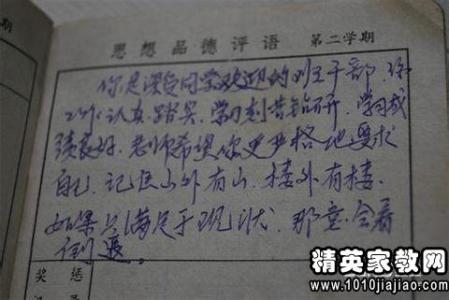 思想品德评语 第二学期
你是深受同学欢迎的班干部，你
工作认真踏实，学习刻苦钻研，学习成
绩良好。老师希望你更严格地要求
自己，记住山外有山，楼外有楼。
如果只满足于现状，那意会着
倒退。
奖惩
精英家教网
www.1010jiajiao.com